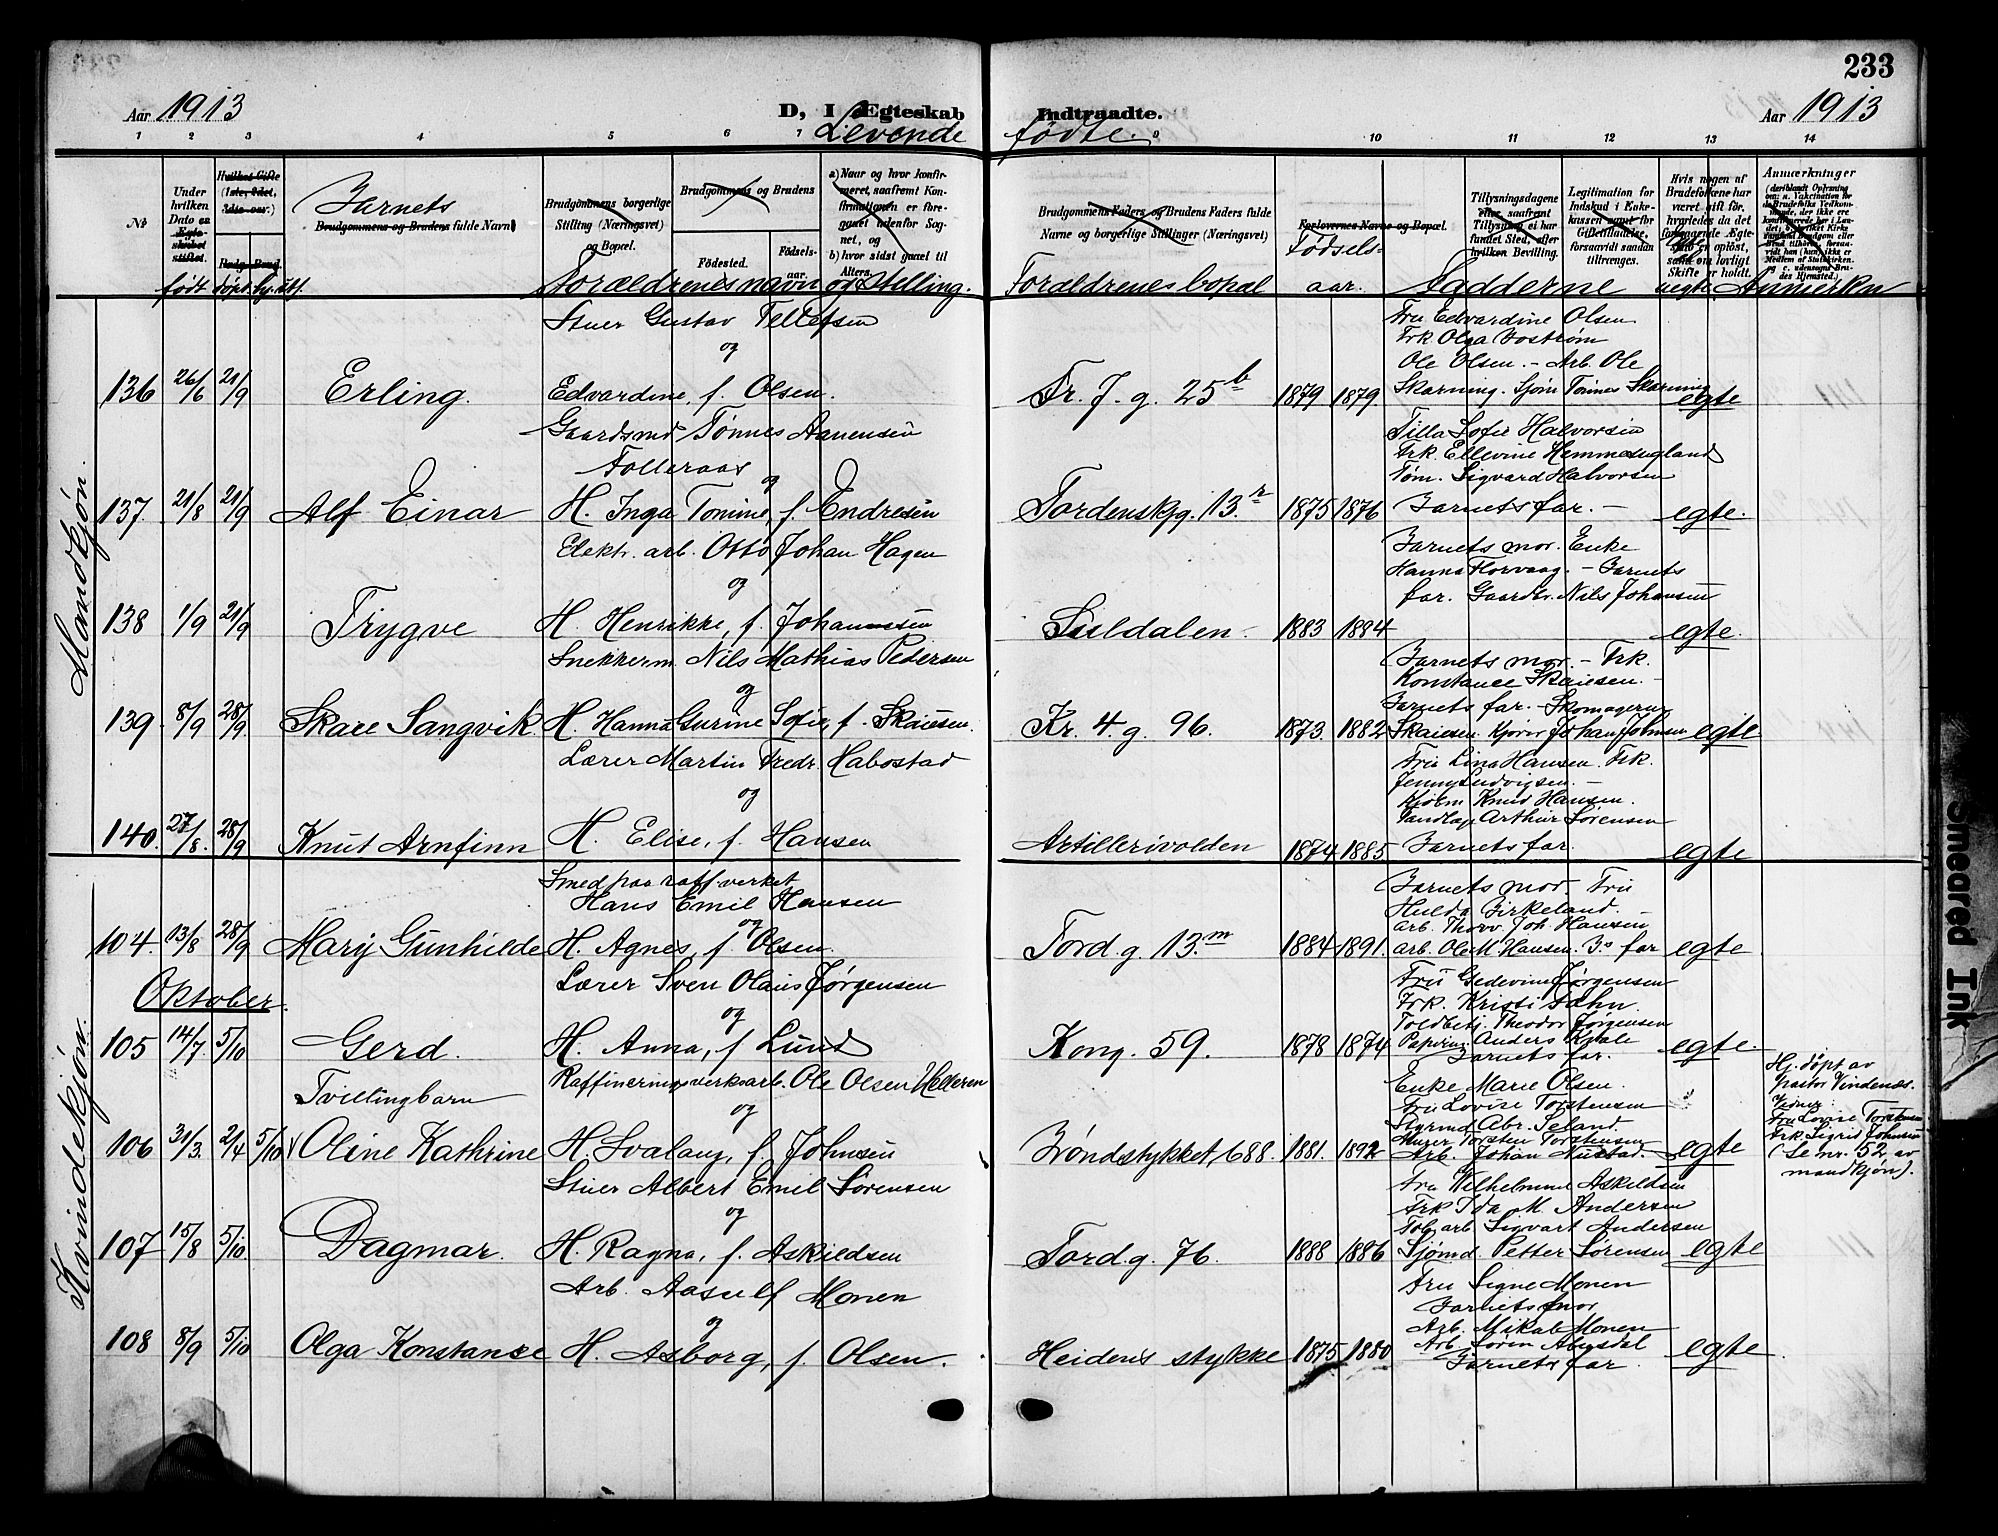 233
Aar 1913 D, I Ægteskab Indtraadte. Aar 1913
Levende fødte.
1 2 3 4 5 6 7 9 10 11 12 13 14
№
Under hvilken Dato er Ægteskabet stiftet.
født
Hvilket Gifte (1ste, 2det, 3die o.s.v.)
Barnets
Brudgommens og Brudens fulde Navn
Brudgommens borgerlige Stilling (Næringsvei) og Bopæl.
Brudgommens og Brudens
Fødested.
Fødsels-aar.
a) Naar og hvor konfirmeret, saafremt Konfirmationen er foregaaet udenfor Sognet, og
b) hvor sidst gaaet til Alters.
Forældrenes navn og stilling.
Brudgommens Faders og Brudens Faders fulde Navne og borgerlige Stillinger (Næringsvei)
Forældrenes bopæl
Forlovernes Navne og Bopæl.
Fødsels-
aar.
Tillysningsdagene eller, saafremt Tillysning ei har fundet Sted, efter hvilken Bevilling.
Legitimation for Indskud i Enkekassen samt for Giftetilladelse, forsaavidt saadan tiltrænges.
Fadderne
Hvis nogen af Brudefolkene har været gift før, hvorledes da det foregaaende Ægteskab er opløst, samt om lovligt Skifte er holdt.
uegte
Anmærkninger
Anmerkn
Mandkjøn.
Stuer Gustav Tellefsen
og
136 26/6 21/9 Erling. Edvardine, f. Olsen. Fr. 7. g. 25b 1879 1879. egte
Fru Edvardine Olsen
Frk. Olga Vostrøm
Ole Olsen. - Arb. Ole
Skarning. Sjøm. Tønnes Skarning
Gaardsmd Tønnes Aanensen
Folleraas
og
137. 21/8 21/9 Alf Einar H. Inga Tomine, f. Endresen Tordenskjg. 13.r 1875 1876 egte.
Tilla Sofie Halvorsen
Frk. Ellevine Hemmesugland
Tøm. Sigvard Halvorsen
Barnets far. -
Elektr. arb. Otto Johan Hagen
og
138 1/9 21/9 Trygve H. Henrikke, f. Johannsen Suldalen. 1883 1884 egte.
Barnets mor. Enke
Hanna Horvaag. - Barnets
far. Gaardbr. Nils Johansen
Snekkerm. Nils Mathias Pedersen
og
139. 8/9 28/9 Skaee Sangvik H. Hanna Gurine Sofie, f. Skaiesen. Kr. 4. g. 96. 1873. 1882 egte
Barnets mor. - Frk.
Konstance Skaiesen. -
Barnets far. - Skomagerm
Skaiesen. Kjører Johan Johnsen
Lærer Martin Fredr. Habostad
og
140. 27/8. 28/9 Knut Arnfinn H. Elise, f. Hansen Artillerivolden 1874 1885 egte
Fru Lina Hansen. Frk.
Jenny Ludvigsen. -
Kjøbm Knud Hansen.
Tandlæg Arthur Sørensen
Barnets far.
Kvindekjøn.
Smed paa raff. verket
Hans Emil Hansen
og
104. 13/8 28/9 Mary Gunhilde H. Agnes, f. Olsen. Tord. g. 13.m 1884 1891. egte
Barnets mor Fru
Hulda Birkeland. -
arb. Thorv. Joh. Hansen
arb. Ole M. Hansen. B.s far
Oktober.
Lærer Sven Olaus Jørgensen
og
105 14/7. 5/10 Gerd. H. Anna, f. Lund Kong. 59. 1878 1874 egte.
Fru Gedevine Jørgensen
Frk. Kristi Jahn
Toldbetj. Theodor Jørgensen
Anders Kvale
Barnets far.
Raffineringsverksarb. Ole Olsen Helleren
og
Tvillingbarn
106 31/3. 2/4 5/10 Oline Kathrine H. Svalaug, f. Johnsen Brøndstykket, 688. 1881. 1892 egte
Enke Marie Olsen.
Fru Lovise Torstensen
Styrmd Abr. Jeland.
Torsten Torstensen
Arb. Johan Nustad.
Hj. døpt av
pastor Vindenes.
Vidner:
Fru Lovise Torstensen
Frk. Sigrid Johnsen
(Se nr. 52 av
mandkjøn).
Stuer Albert Emil Sørensen
og
107 15/8 5/10 Dagmar. H. Ragna, f. Askildsen Tord. g. 76. 1888 1886 egte
Fru Wilhelmine Askildsen
Frk Ida M. Andersen
Tob. arb Sigvart Andersen
Sjømd. Petter Sørensen
Arb. Aasulf Monen
og
108 8/9 5/10 Olga Konstanse H. Asborg, f. Olsen. Heidens stykke 1875 1880 egte
Fru Signe Monen
Barnets mor
Arb. Mikal Monen
Arb. Søren Abusdal
Barnets far.
Smeared Ink